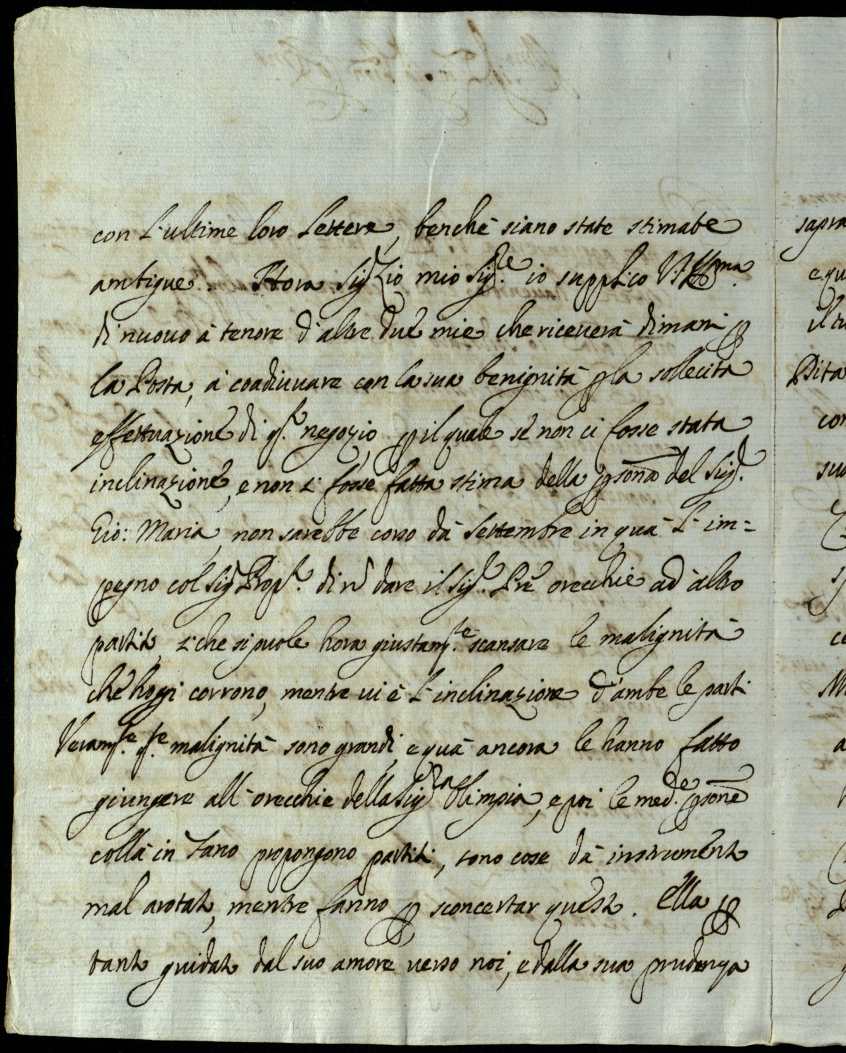 con l'ultime loro lettere, benche siano state stimate
ambigue. Hora Sig.r Zio mio Sig.re io supplico V.S. Ill.ma
di nuovo à tenore d'altre due mie che riceverà dimani p
la Posta, à coadiuvare con la sua benignità p la sollecita
effettuazione di q.to negozio, p il quale se non ci fosse stata
inclinazione, e non si fosse fatta stima della psona del Sig.r
Gio: Maria, non sarebbe corso dà Settembre in quà l'im=
pegno col Sig.r di nò dare il Sig.r orecchie ad altro
partito, e che si puole hora giustam.te scansare le malignità
che hoggi corrono, mentre vi è l'inclinazione d'ambe le parti
Veram.te q.te malignità sono grandi, e quà ancora le hanno fatto
giungere all'orecchie della Sig.ra Olimpia, e poi le med.e psone
collà in Fano propongono partiti, sono cose dà instrumenti
mal arotati, mentre fanno p sconcertar questi. Ella p
tanto guidato dal suo amore verso noi, e dalla sua prudenza
sapra
con